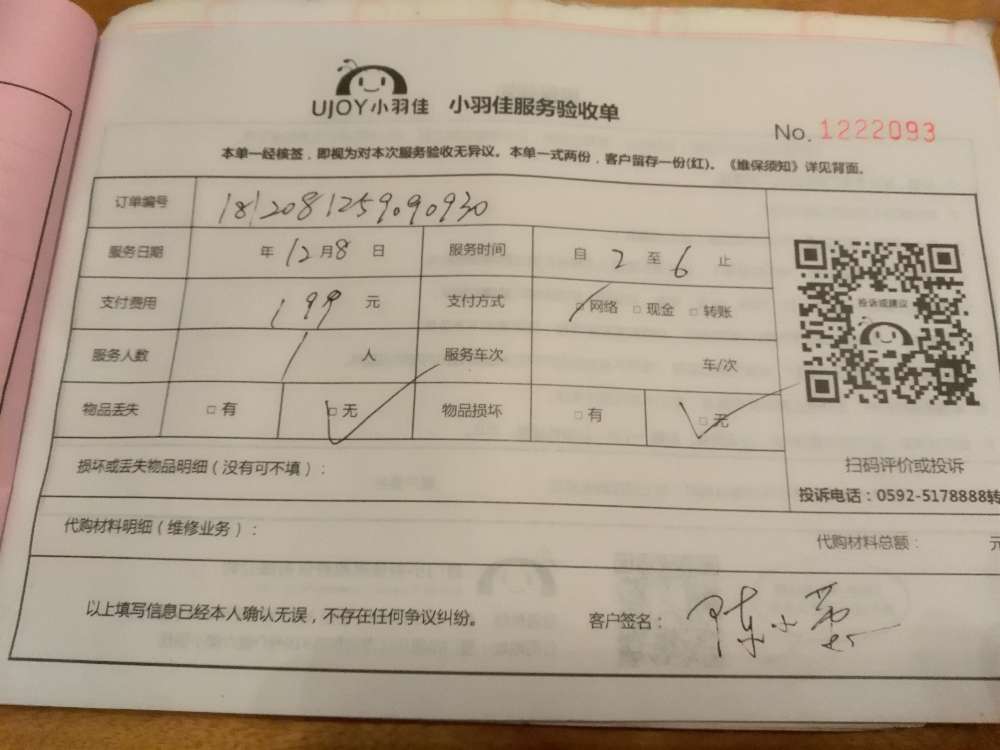 UJOY小羽佳 小羽佳服务验收单
No. 1222093
本单一经核签，即视为对本次服务验收无异议。本单一式两份，客户留存一份(红)。《维保须知》详见背面。
订单编号 1812081259090930
服务日期 年 12 月 8 日 服务时间 自 2 至 6 止
支付费用 199 元 支付方式 □网络 □现金 □转账
服务人数 1 人 服务车次 车/次
物品丢失 □有 □无 物品损坏 □有 □无
投诉或建议
扫码评价或投诉
投诉电话：0592-5178888转
损坏或丢失物品明细（没有可不填）：
代购材料明细（维修业务）：
代购材料总额： 元
以上填写信息已经本人确认无误，不存在任何争议纠纷。 客户签名： 陈小